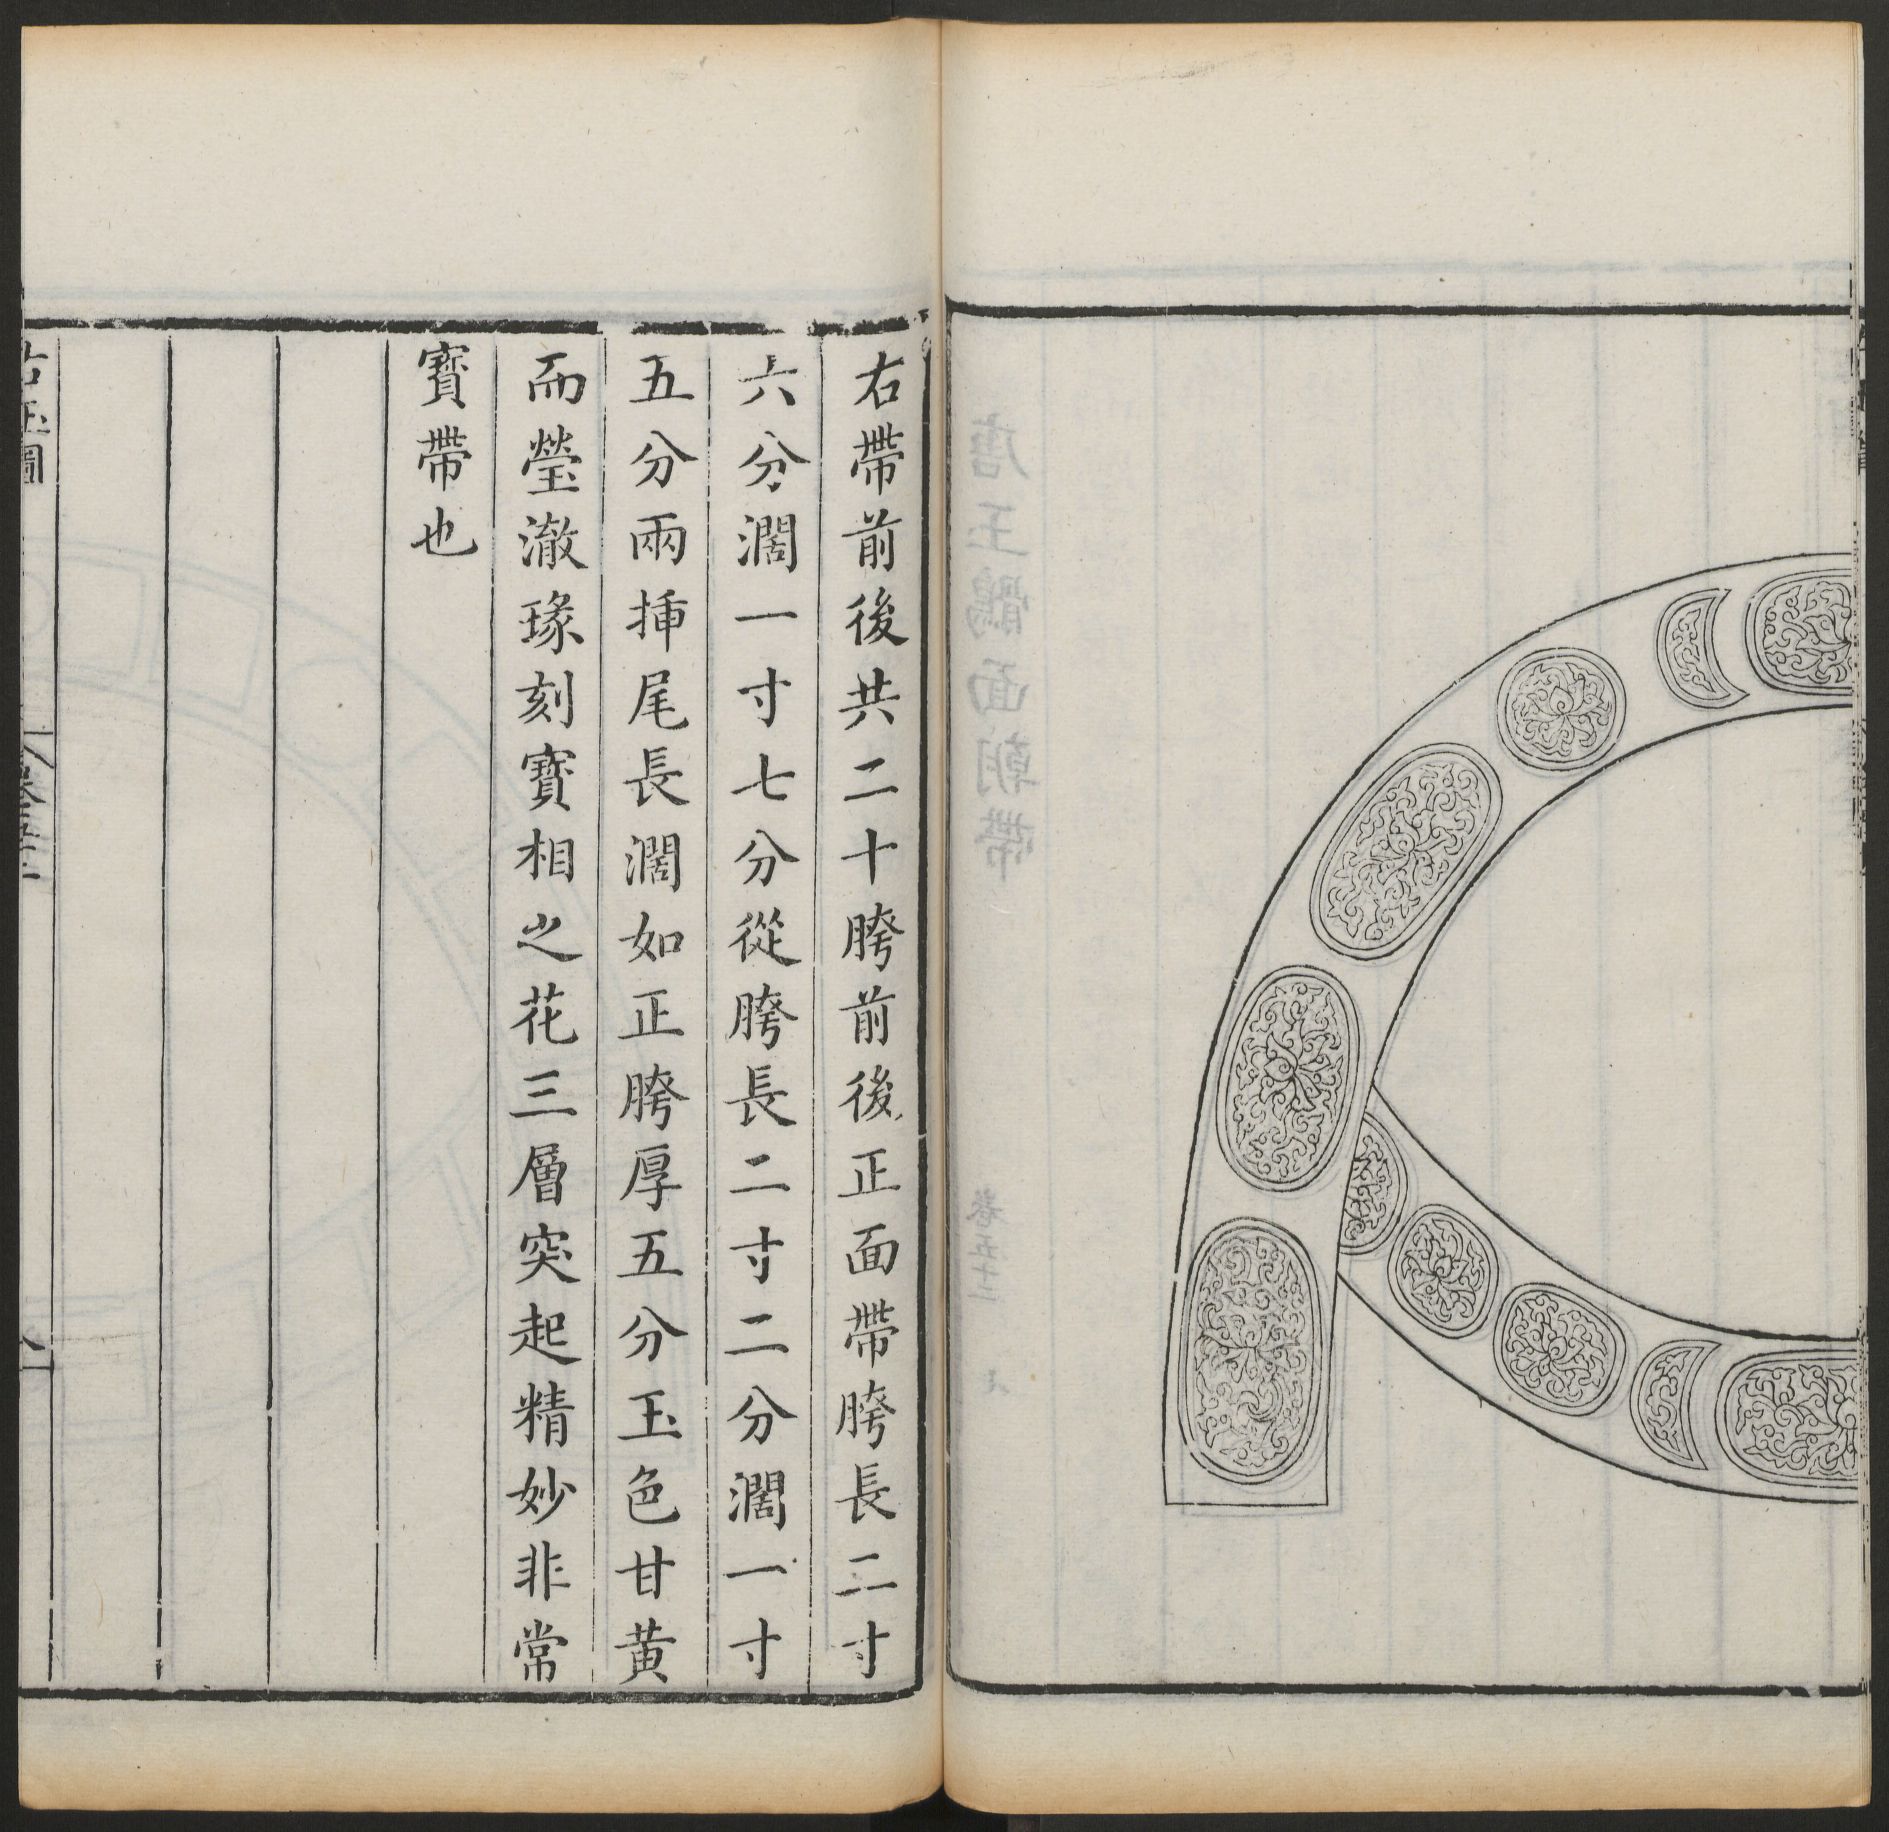 右帶前後共二十胯前後正面帶胯長二寸
六分濶一寸七分從胯長二寸二分濶一寸
五分兩揷尾長濶如正胯厚五分玉色甘黃
而瑩澈瑑刻寶相之花三層突起精妙非常
寶帶也
古玉圖
卷五十二